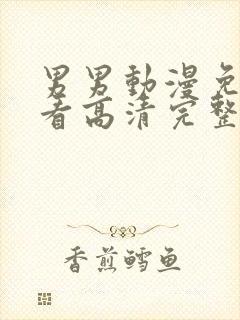 男男動漫免
看高清完整
香煎鳕鱼